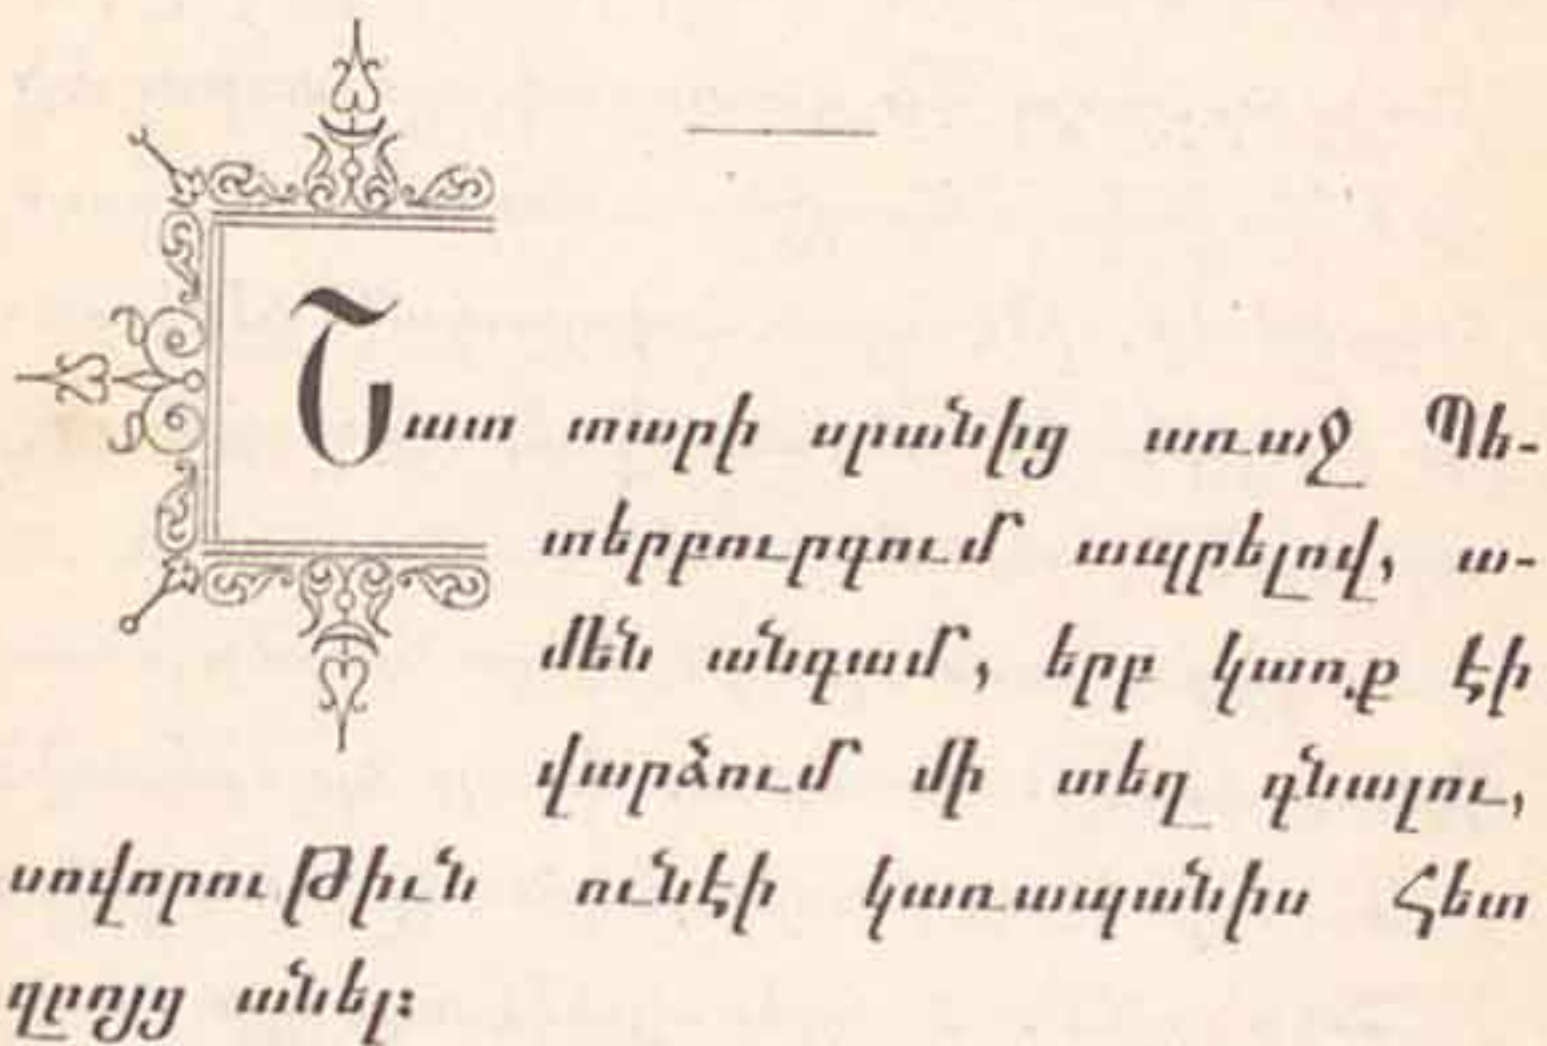 Շատ տարի սրանից առաջ Պե-
տերբուրգում ապրելով, ա-
մեն անգամ, երբ կառք էի
վարձում մի տեղ գնալու,
սովորութիւն ունէի կառապանիս հետ
զրոյց անել։